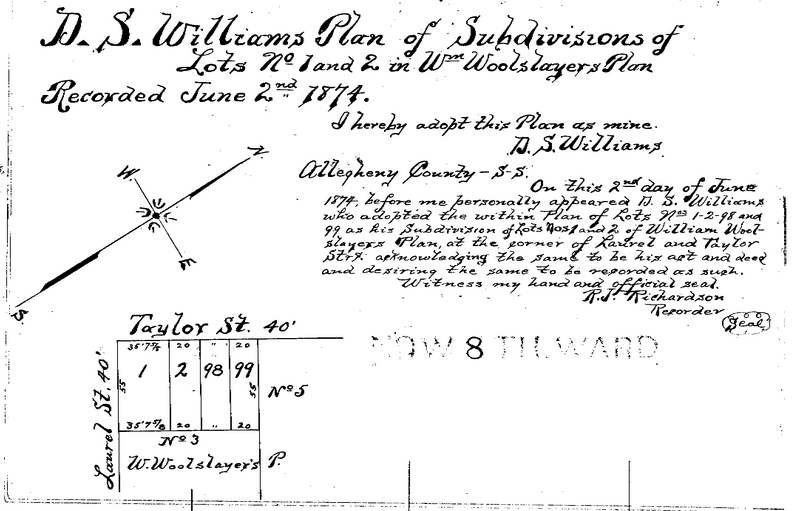 D. S. Williams Plan of Subdivisions of
Lots No 1 and 2 in Wm Woolslayers Plan
Recorded June 2nd 1874.
I hereby adopt this Plan as mine.
D. S. Williams
Allegheny County - S-S.
On this 2nd day of June
1874, before me personally appeared D. S. Williams
who adopted the within Plan of Lots Nos 1-2-98 and
99 as his Subdivision of Lots Nos 1 and 2 of William Wool-
slayers Plan, at the corner of Laurel and Taylor
Strs. acknowledging the same to be his act and deed
and desiring the same to be recorded as such.
Witness my hand and official seal.
R. J. Richardson
Recorder
Seal
N
W
E
S.
NOW 8 TH. WARD
Taylor St. 40'
Laurel St. 40'
35'7⅞ 20 " 20
1 2 98 99
55 55
No 5
35'7⅞ 20 " 20
No 3
W. Woolslayer's P.